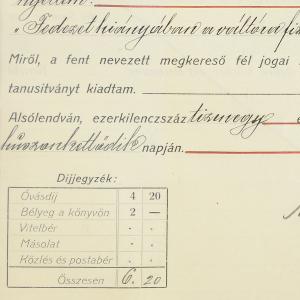 nyertem:
„Fedezet hiányában a váltóra fi
Miről, a fent nevezett megkereső fél jogai
tanusitványt kiadtam.
Alsólendván, ezerkilencszáz tizenegy
huszonkettedik napján.
Dijjegyzék:
Óvásdíj 4 20
Bélyeg a könyvön 2 —
Vitelbér . .
Másolat . .
Közlés és postabér . .
Összesen 6. 20